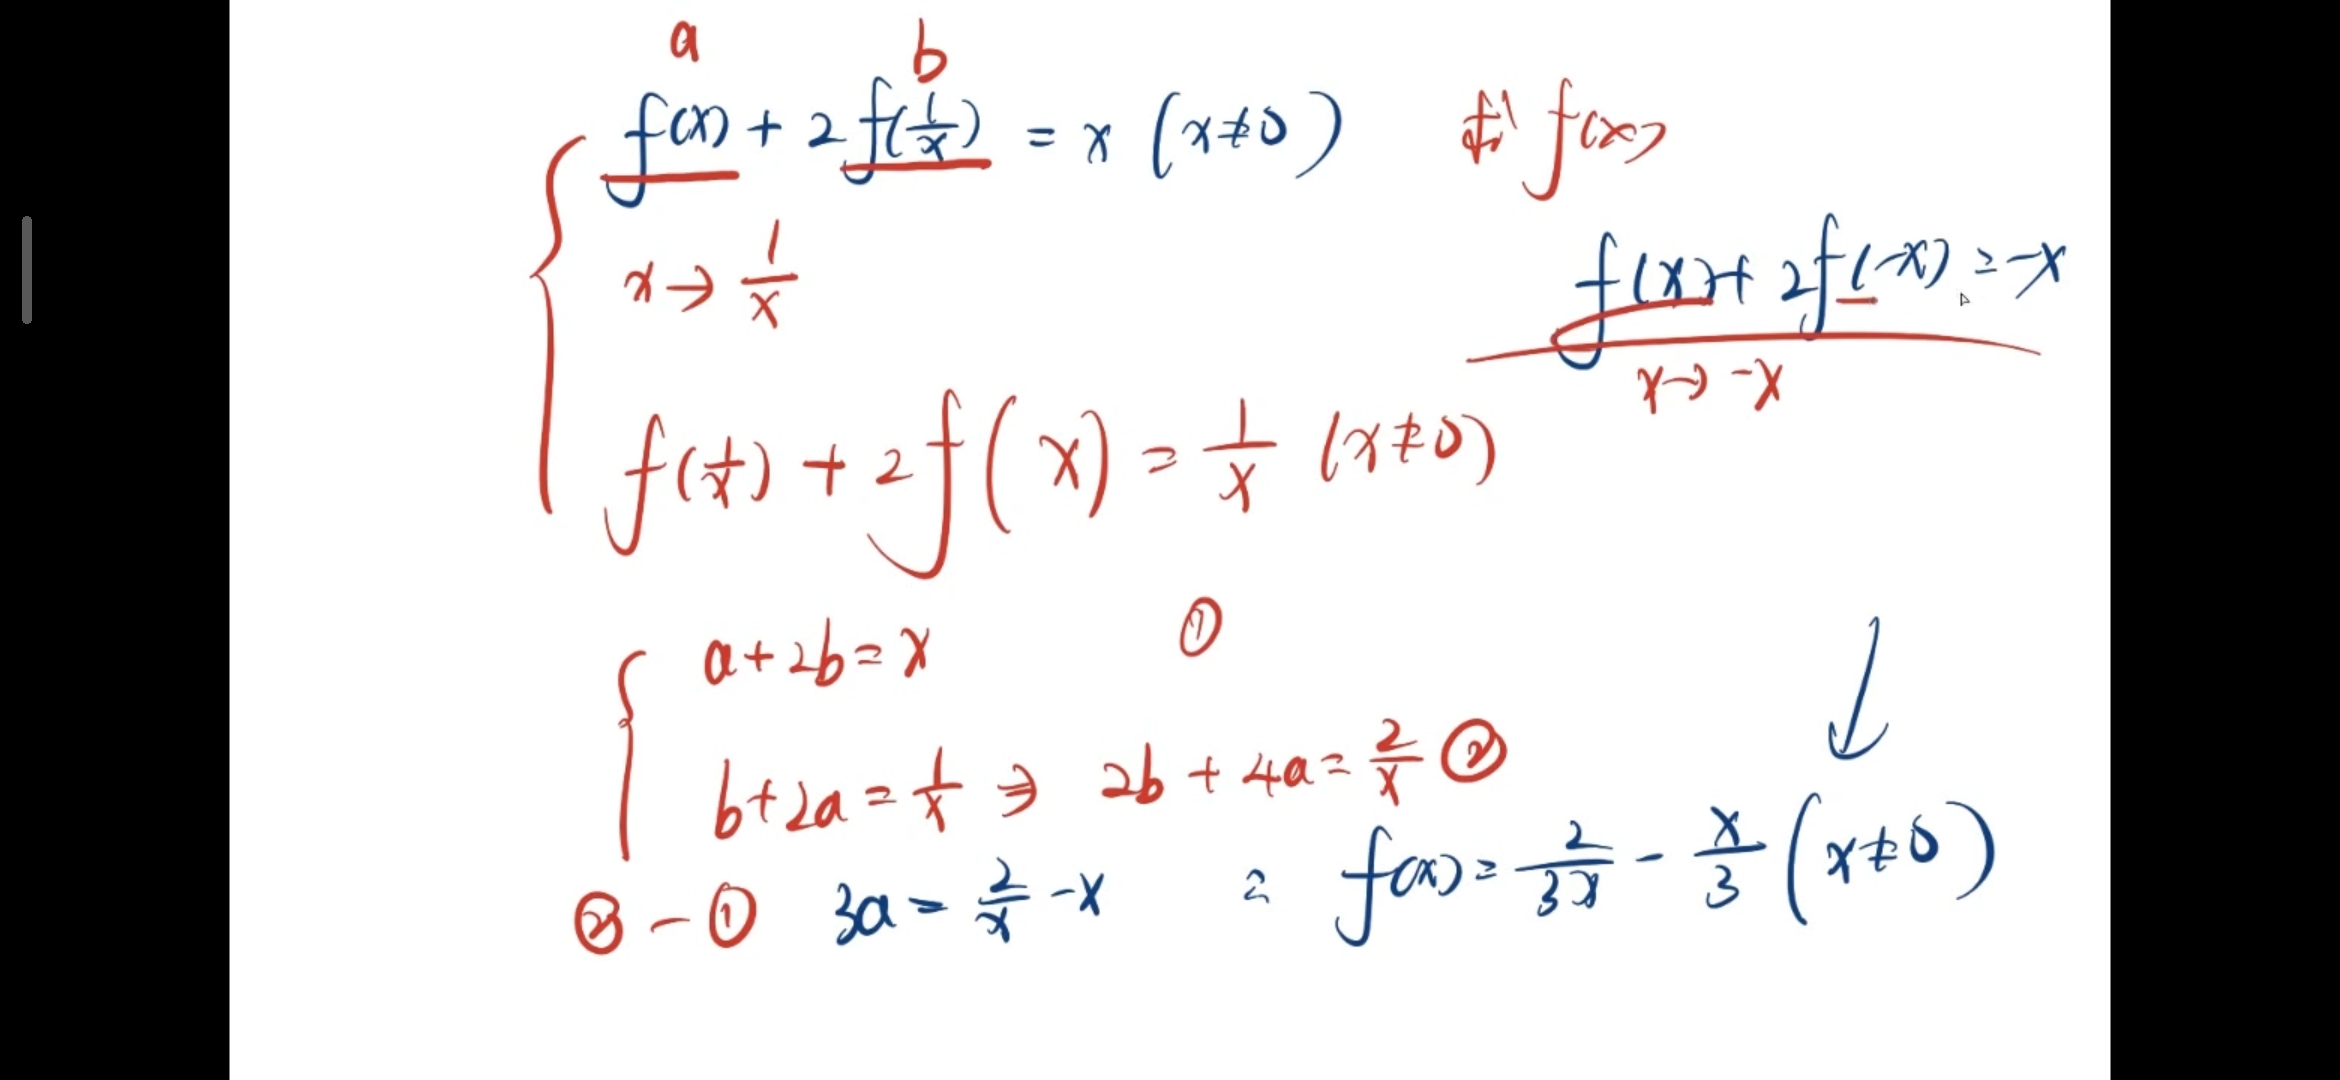 a b
f(x) + 2f(1/x) = x (x≠0) 求 f(x)
x → 1/x
f(x) + 2f(-x) = -x
x → -x
f(1/x) + 2f(x) = 1/x (x≠0)
a + 2b = x ①
b + 2a = 1/x ⇒ 2b + 4a = 2/x ②
② - ① 3a = 2/x - x = f(x) = 2/3x - x/3 (x≠0)